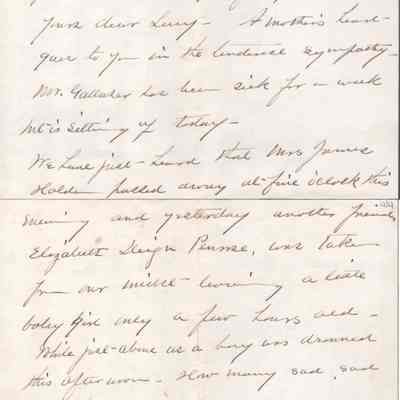 yours dear Lucy - A mother's heart
goes to you in the tenderest sympathy -
Mr. Gallaher has been sick for a week
but is sitting up today -
We have just - heard that Mrs James
Holden passed away at five o'clock this
evening and yesterday another friend
Elizabeth Penrose, was taken
from our midst leaving a little
baby girl only a few hours old -
While just above us a boy was drowned
this afternoon - How many sad, sad